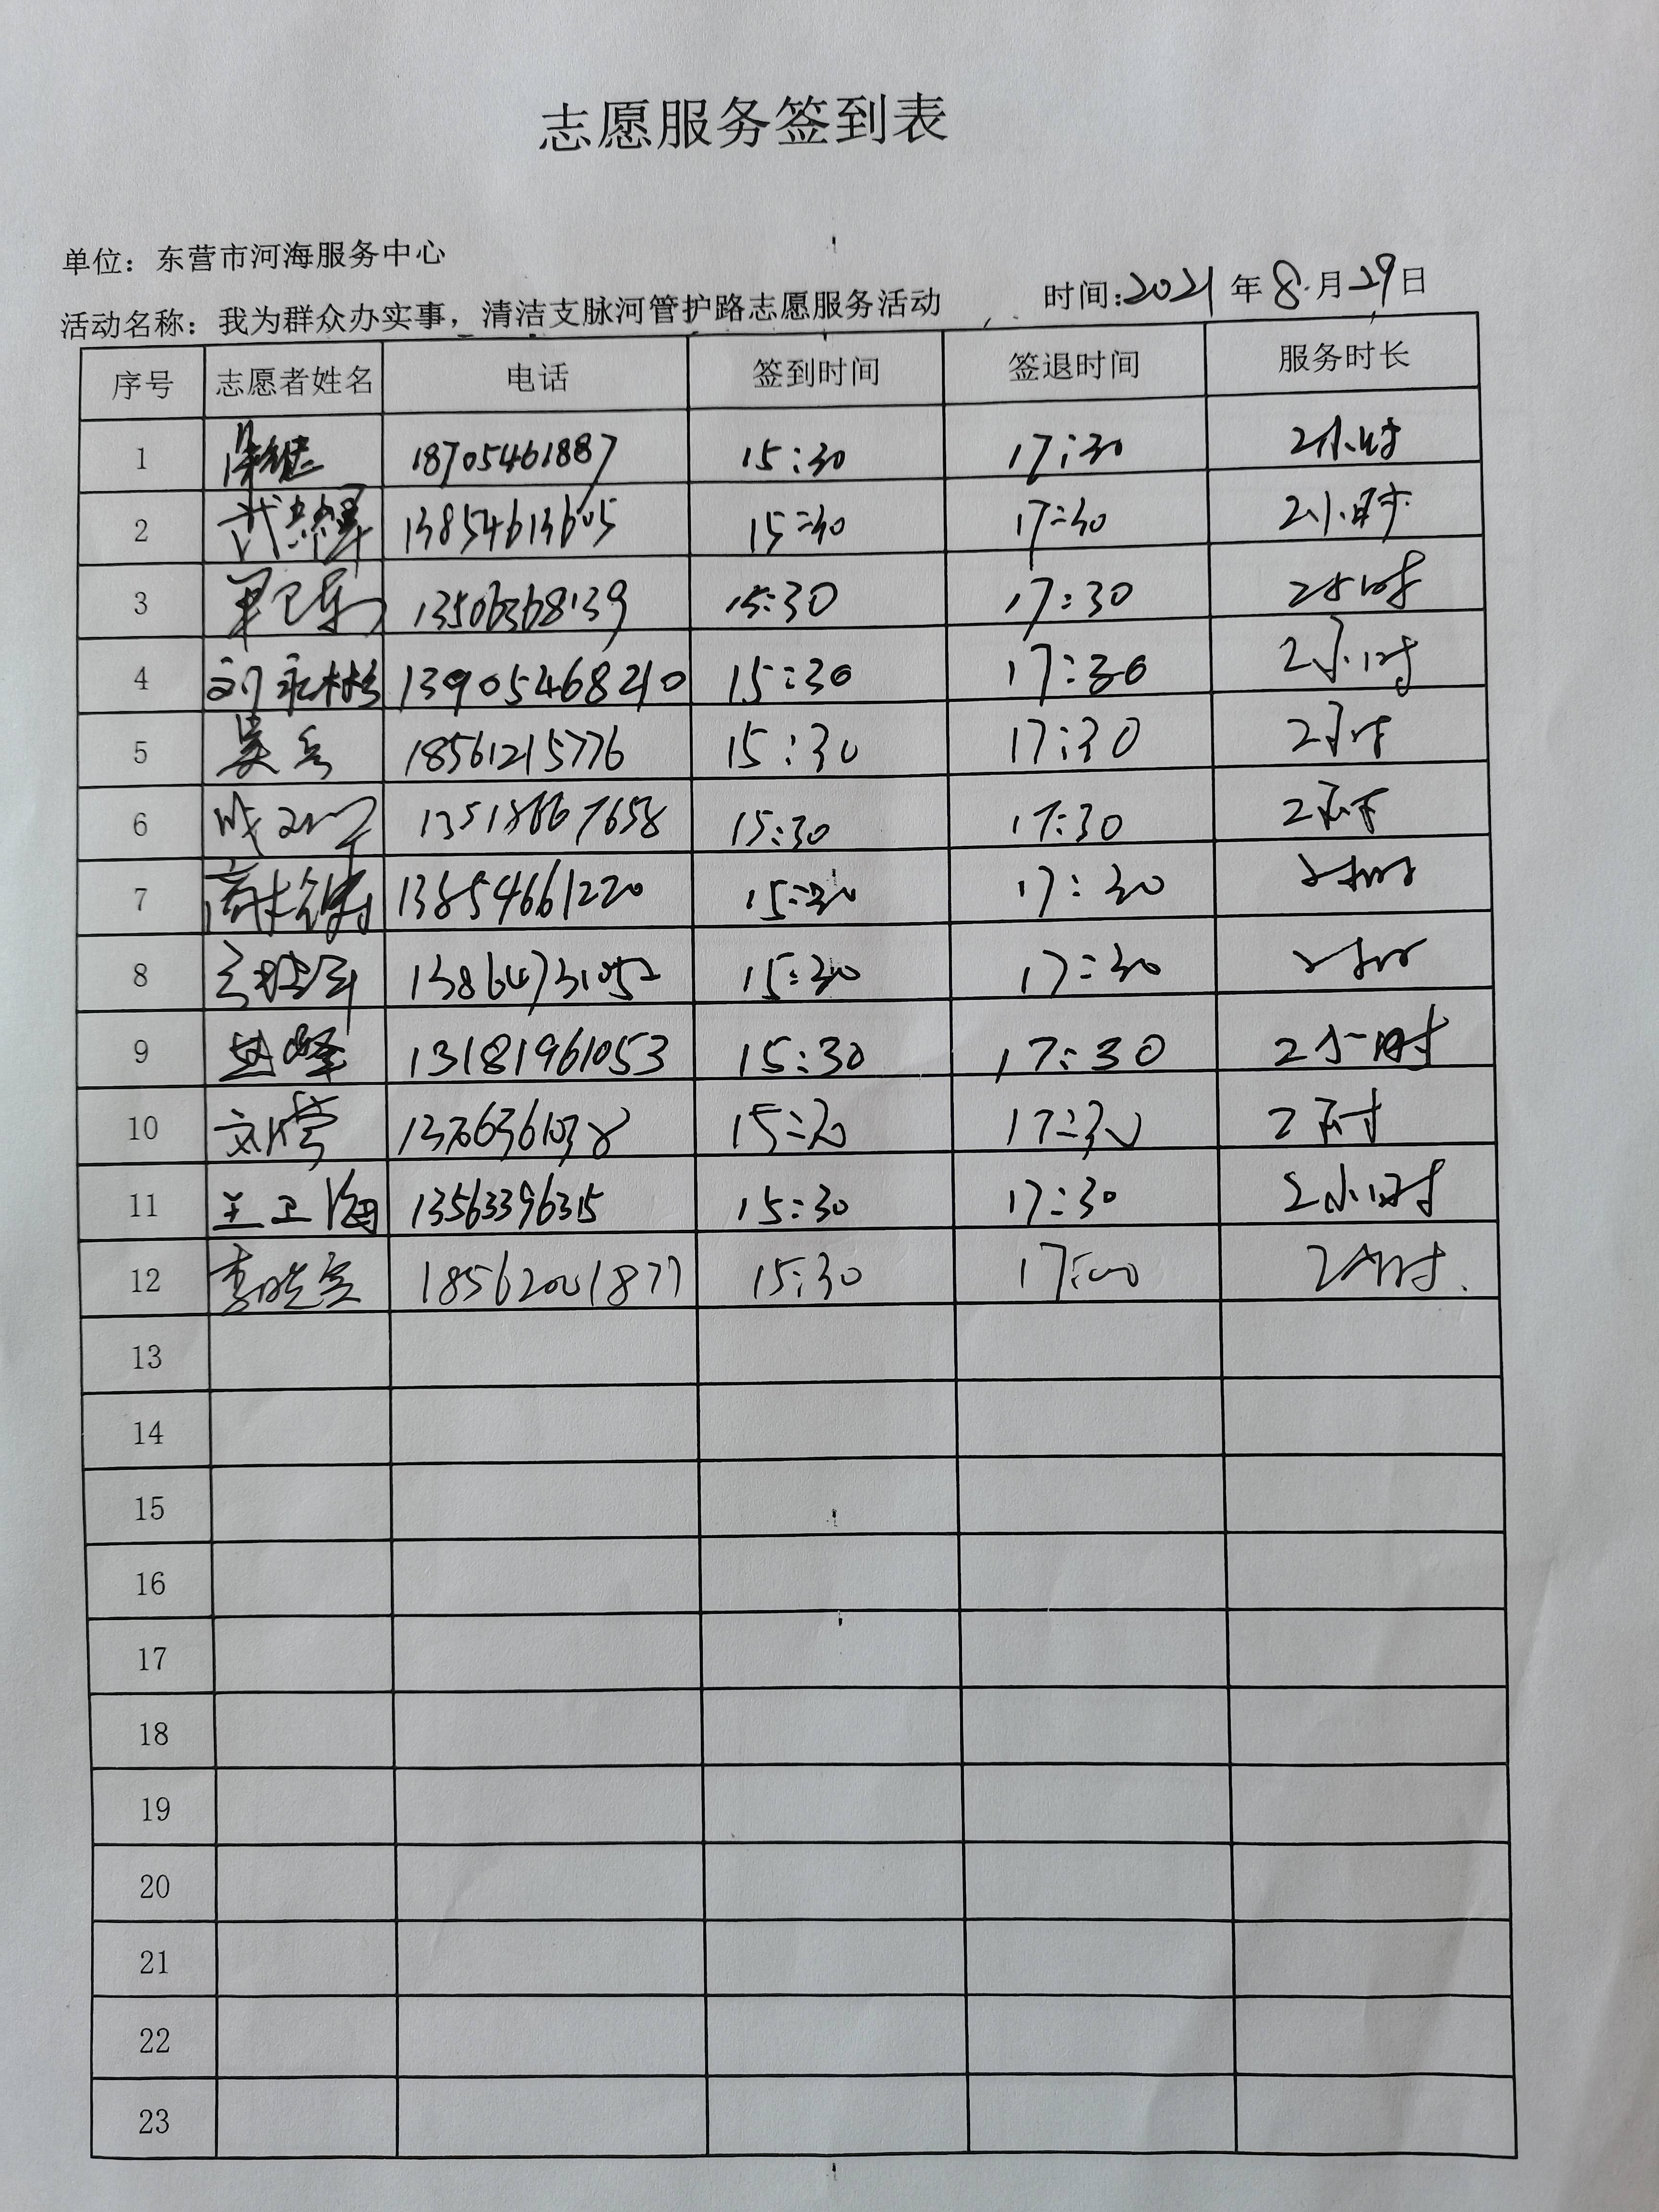 志愿服务签到表
单位：东营市河海服务中心
活动名称：我为群众办实事，清洁支脉河管护路志愿服务活动 时间：2021年8月29日
序号 志愿者姓名 电话 签到时间 签退时间 服务时长
1 18705461887 15:30 17:30 2小时
2 13854613605 15:30 17:30 2小时
3 13506368139 15:30 17:30 2小时
4 刘永彬 13905468210 15:30 17:30 2小时
5 吴兵 18561215776 15:30 17:30 2小时
6 15:30 17:30 2小时
7 13854661220 15:30 17:30 2小时
8 13864731052 15:30 17:30 2小时
9 赵峰 13181961053 15:30 17:30 2小时
10 15:30 17:30 2小时
11 王卫海 13563396315 15:30 17:30 2小时
12 18562001877 15:30 17:00 2小时.
13
14
15
16
17
18
19
20
21
22
23